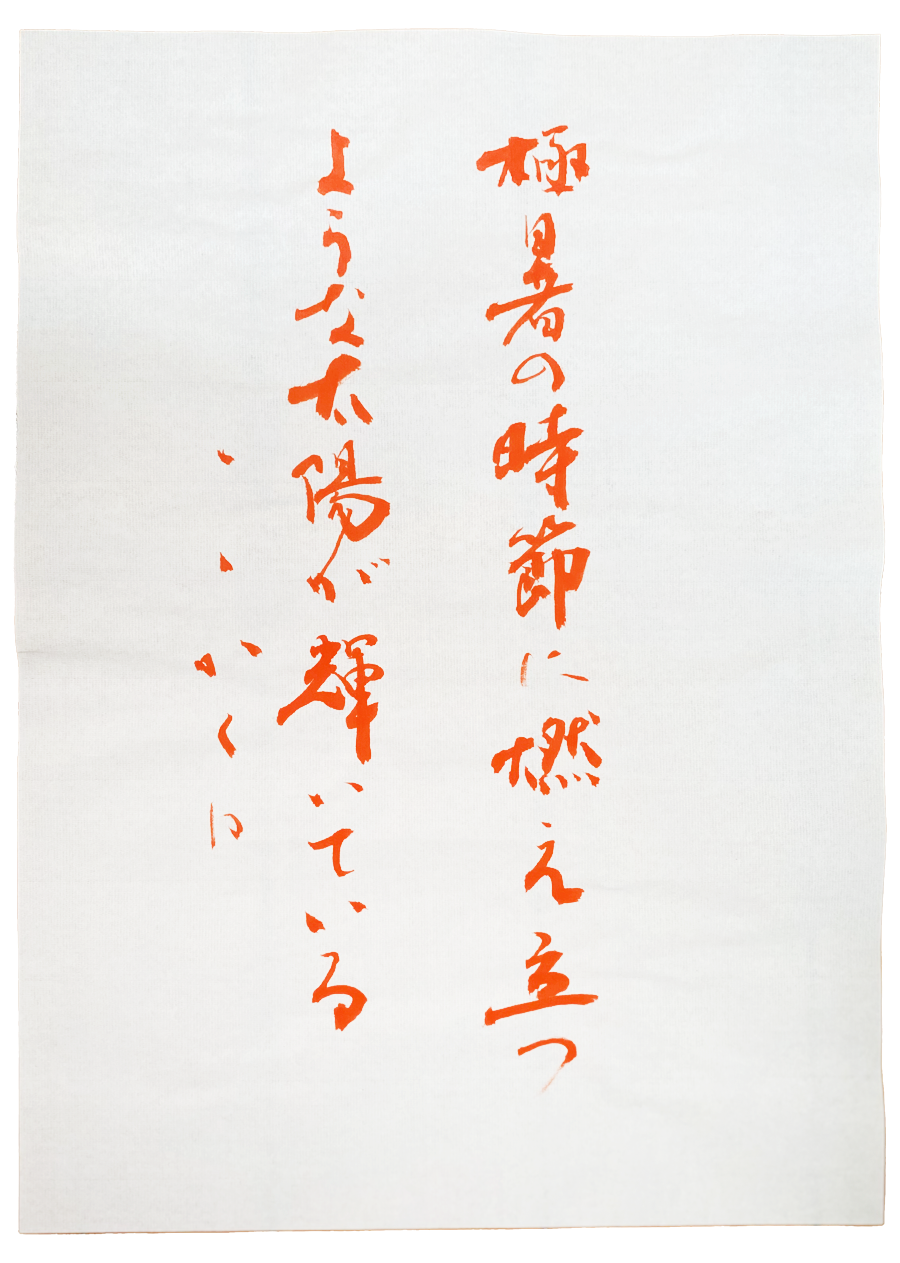 極暑の時節に燃え立つ
ような太陽が輝いている